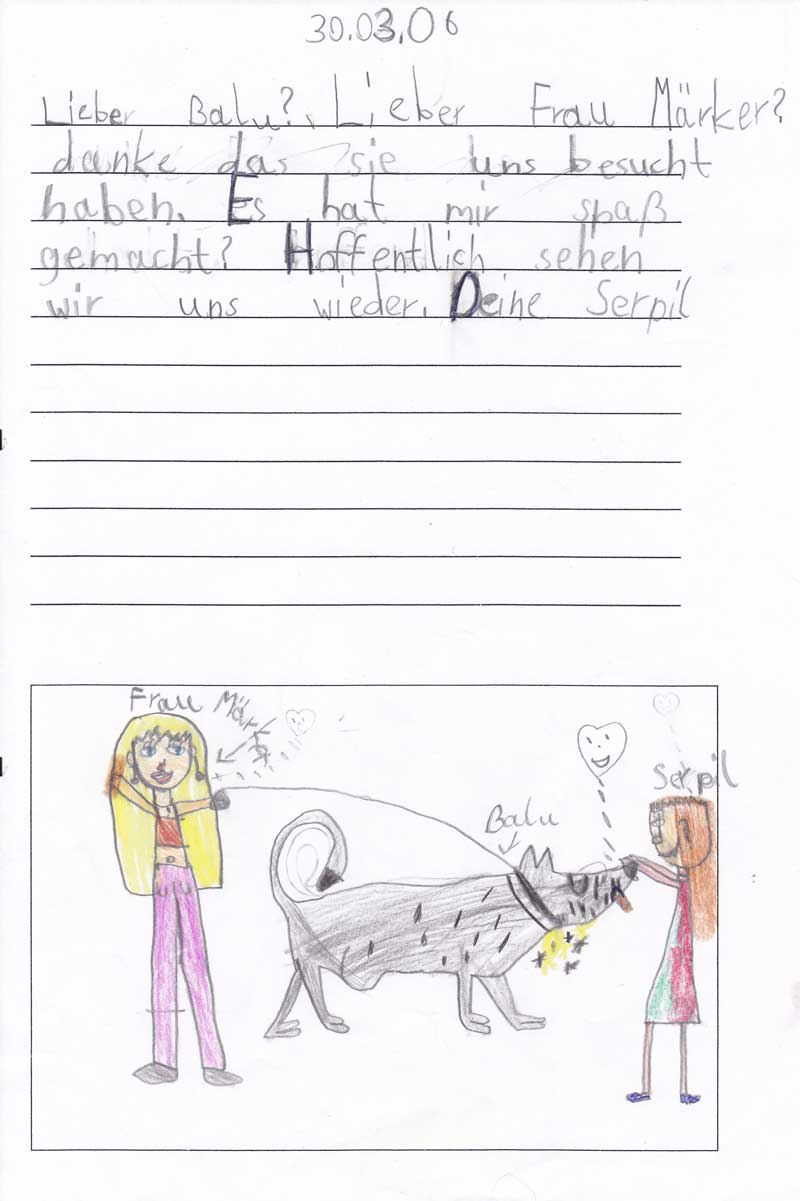 30.03.06
Lieber Balu? Lieber Frau Märker?
danke das sie uns besucht
haben. Es hat mir spaß
gemacht? Hoffentlich sehen
wir uns wieder. Deine Serpil
Frau Märker
Balu
Serpil